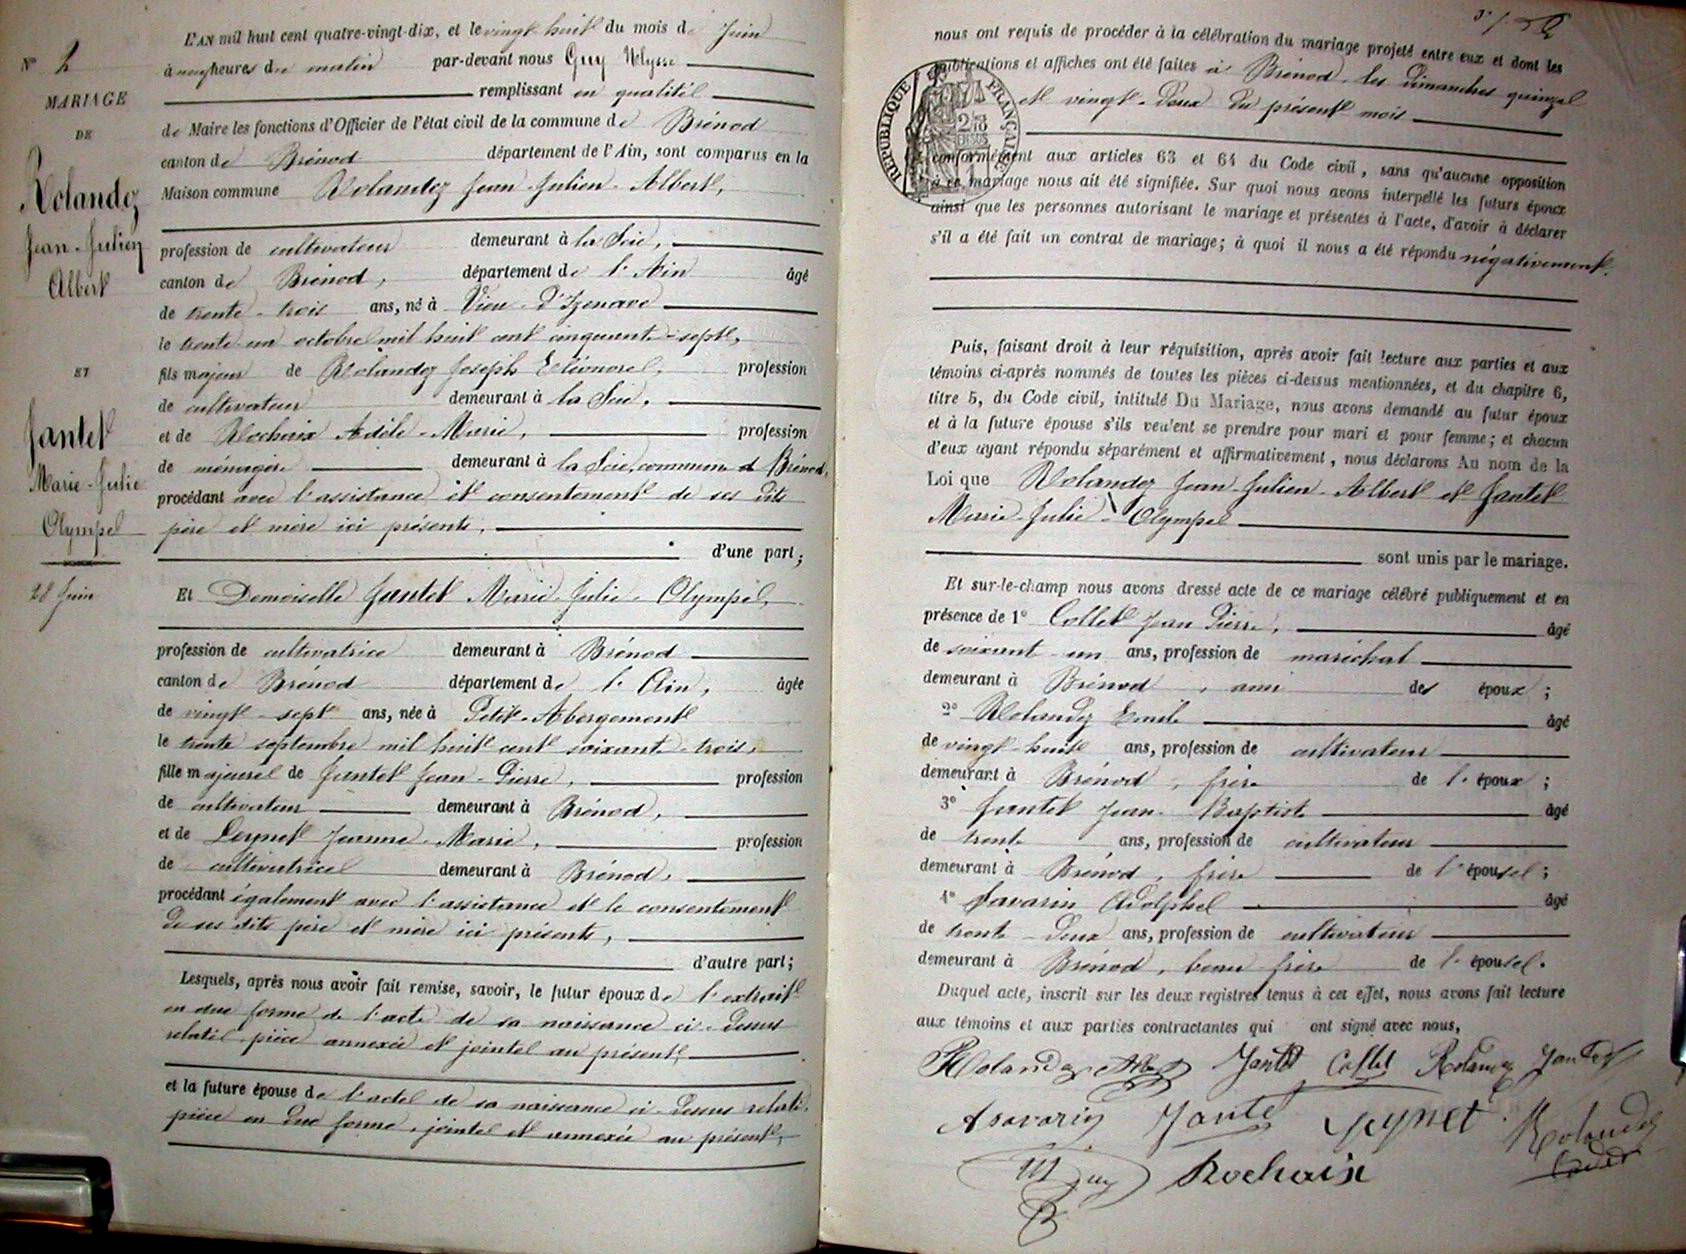 L'AN mil huit cent quatre-vingt-dix, et le vingt huit du mois de Juin
N° 2
à neuf heures du matin par-devant nous Guy Ulysse
MARIAGE
remplissant en qualité
DE
de Maire les fonctions d'Officier de l'état civil de la commune de Brénod
canton de Brénod département de l'Ain, sont comparus en la
Rolandez
Maison commune Rolandez Jean-Julien-Albert,
Jean-Julien
Albert
profession de cultivateur demeurant à la Scie,
canton de Brénod, département de l'Ain âgé
de trente-trois ans, né à Vieu-d'Izenave
le trente-un octobre mil huit cent cinquante-sept,
ET
fils majeur de Rolandez Joseph Eléonore, profession
de cultivateur demeurant à la Scie,
Jantet
et de Rochaix Adèle-Marie, profession
Marie-Julie
de ménagère demeurant à la Scie, commune d Brénod,
Olympe
procédant avec l'assistance et consentement de ses dits
père et mère ici présents,
d'une part;
28 Juin
Et Demoiselle Jantet Marie-Julie-Olympe,
profession de cultivatrice demeurant à Brénod
canton de Brénod département de l'Ain, âgée
de vingt-sept ans, née à Petit-Abergement
le trente septembre mil huit cent soixante-trois,
fille majeure de Jantet Jean-Pierre, profession
de cultivateur demeurant à Brénod,
et de Leynet Jeanne-Marie, profession
de cultivatrice demeurant à Brénod,
procédant également avec l'assistance et le consentement
de ses dits père et mère ici présents,
d'autre part;
Lesquels, après nous avoir fait remise, savoir, le futur époux de l'extrait
en due forme de l'acte de sa naissance ci-dessus
relaté, pièce annexée et jointe au présent
et la future épouse de l'acte de sa naissance ci dessus relaté,
pièce en due forme, jointe et annexée au présent,
nous ont requis de procéder à la célébration du mariage projeté entre eux et dont les
publications et affiches ont été faites à Brénod les dimanches quinze
et vingt-deux du présent mois
RÉPUBLIQUE FRANÇAISE
conformément aux articles 63 et 64 du Code civil, sans qu'aucune opposition
à ce mariage nous ait été signifiée. Sur quoi nous avons interpellé les futurs époux
ainsi que les personnes autorisant le mariage et présentes à l'acte, d'avoir à déclarer
s'il a été fait un contrat de mariage; à quoi il nous a été répondu négativement.
Puis, faisant droit à leur réquisition, après avoir fait lecture aux parties et aux
témoins ci-après nommés de toutes les pièces ci-dessus mentionnées, et du chapitre 6,
titre 5, du Code civil, intitulé Du Mariage, nous avons demandé au futur époux
et à la future épouse s'ils veulent se prendre pour mari et pour femme; et chacun
d'eux ayant répondu séparément et affirmativement, nous déclarons Au nom de la
Loi que Rolandez Jean-Julien-Albert et Jantet
Marie-Julie-Olympe
sont unis par le mariage.
Et sur-le-champ nous avons dressé acte de ce mariage célébré publiquement et en
présence de 1° Collet Jean Pierre, âgé
de soixante-un ans, profession de maréchal
demeurant à Brénod, ami des époux;
2° Rolandez Emile âgé
de vingt-huit ans, profession de cultivateur
demeurant à Brénod, frère de l'époux;
3° Jantet Jean-Baptiste âgé
de trente ans, profession de cultivateur
demeurant à Brénod, frère de l'épouse;
4° Savarin Adolphe âgé
de trente-deux ans, profession de cultivateur
demeurant à Brénod, beau-frère de l'épouse.
Duquel acte, inscrit sur les deux registres tenus à cet effet, nous avons fait lecture
aux témoins et aux parties contractantes qui ont signé avec nous,
Rolandez Jantet Collet Rolandez Jantet
A Savarin Jantet Leynet Rolandez
Guy Rochaix